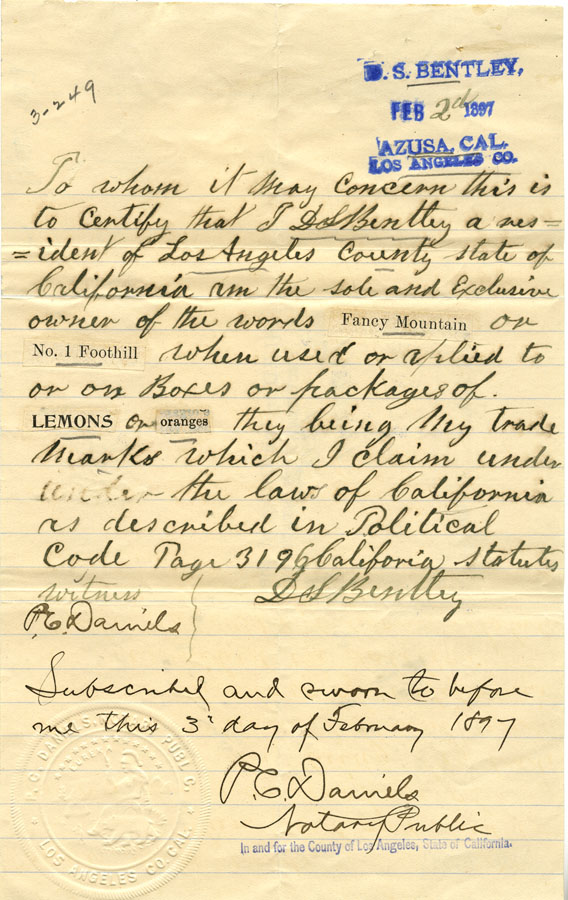 3-249
D. S. BENTLEY,
FEB 2d 1897
AZUSA, CAL.
LOS ANGELES CO.
To whom it May Concern this is
to Certify that I DSBentley a res=
=ident of Los Angeles County state of
California am the sole and Exclusive
owner of the words Fancy Mountain or
No. 1 Foothill when used or aplied to
or on Boxes or packages of.
LEMONS or oranges they being My trade
Marks which I claim under
under the laws of California
as described in Political
Code Page 3196 Califoria statutes
witness DSBentley
P.C. Daniels
Subscribed and sworn to before
me this 3d day of February 1897
P.C. Daniels
Notary Public
In and for the County of Los Angeles, State of California.
P. C. DANIELS, NOTARY PUBLIC.
LOS ANGELES CO. CAL.